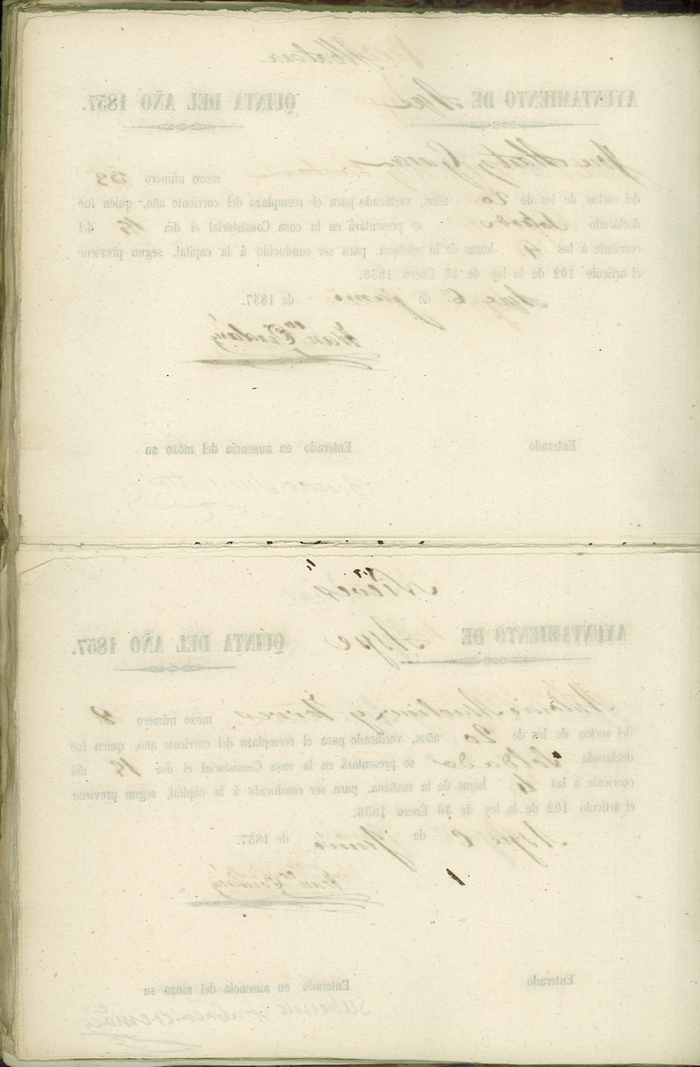 AYUNTAMIENTO DE Aspe QUINTA DEL AÑO 1857.
mozo número 39
del sorteo de los de 20 años, verificado para el reemplazo del corriente año, quien fué
declarado se presentará en la casa Consistorial el dia 15 del
corriente á las 4 horas de la mañana, para ser conducido á la capital, segun previene
el artículo 102 de la ley de 30 Enero 1856.
Aspe 6 de Junio de 1857.
Enterado Enterado en ausencia del mozo su
Nieves
AYUNTAMIENTO DE Aspe QUINTA DEL AÑO 1857.
Antonio Martinez y mozo número 8
del sorteo de los de 20 años, verificado para el reemplazo del corriente año, quien fué
declarado Soldado se presentará en la casa Consistorial el dia 15 del
corriente á las 4 horas de la mañana, para ser conducido á la capital, segun previene
el artículo 102 de la ley de 30 Enero 1856.
Aspe 6 de Junio de 1857.
Enterado Enterado en ausencia del mozo su